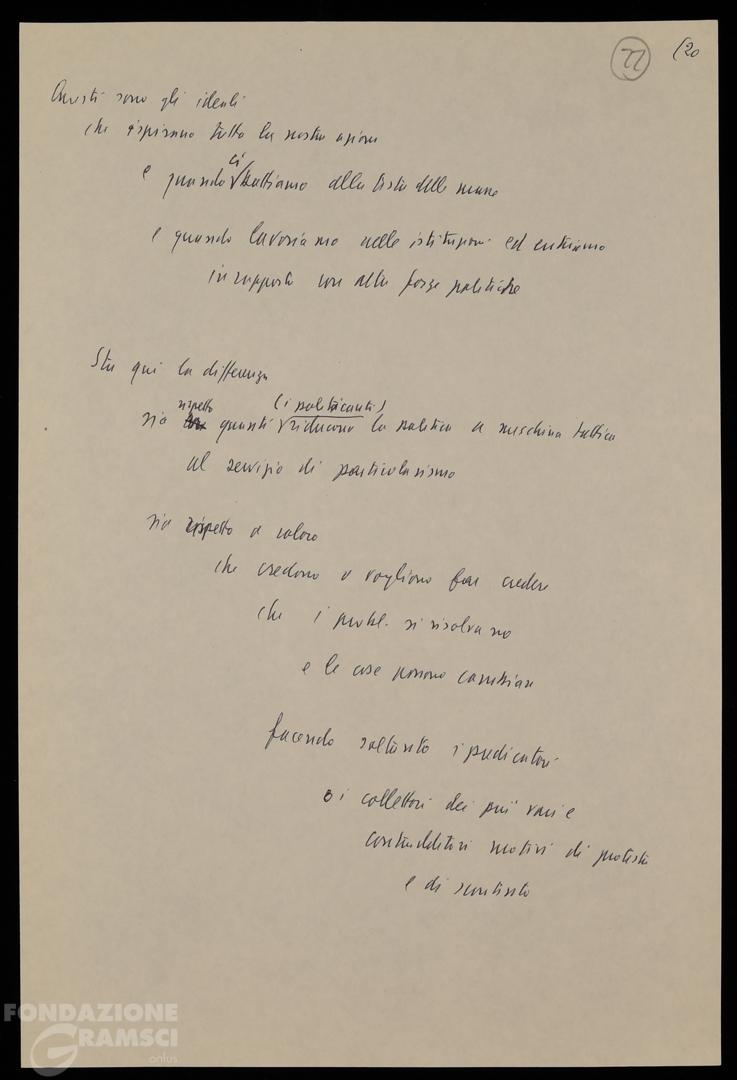 22
(20
Questi sono gli ideali
che ispirano tutta la nostra azione
ci
e quando battiamo alla testa delle masse
e quando lavoriamo nelle istituzioni ed entriamo
in rapporto con altre forze politiche
Sta qui la differenza
rispetto (i politicanti)
sia quanti riducono la politica a meschina tattica
al servizio di particolarismo
sia rispetto a coloro
che credono o vogliono far credere
che i probl. si risolvano
e le cose possono cambiare
facendo soltanto i predicatori
o i collettori dei più vari e
contraddittori motivi di protesta
e di scontento
FONDAZIONE
GRAMSCI
onlus